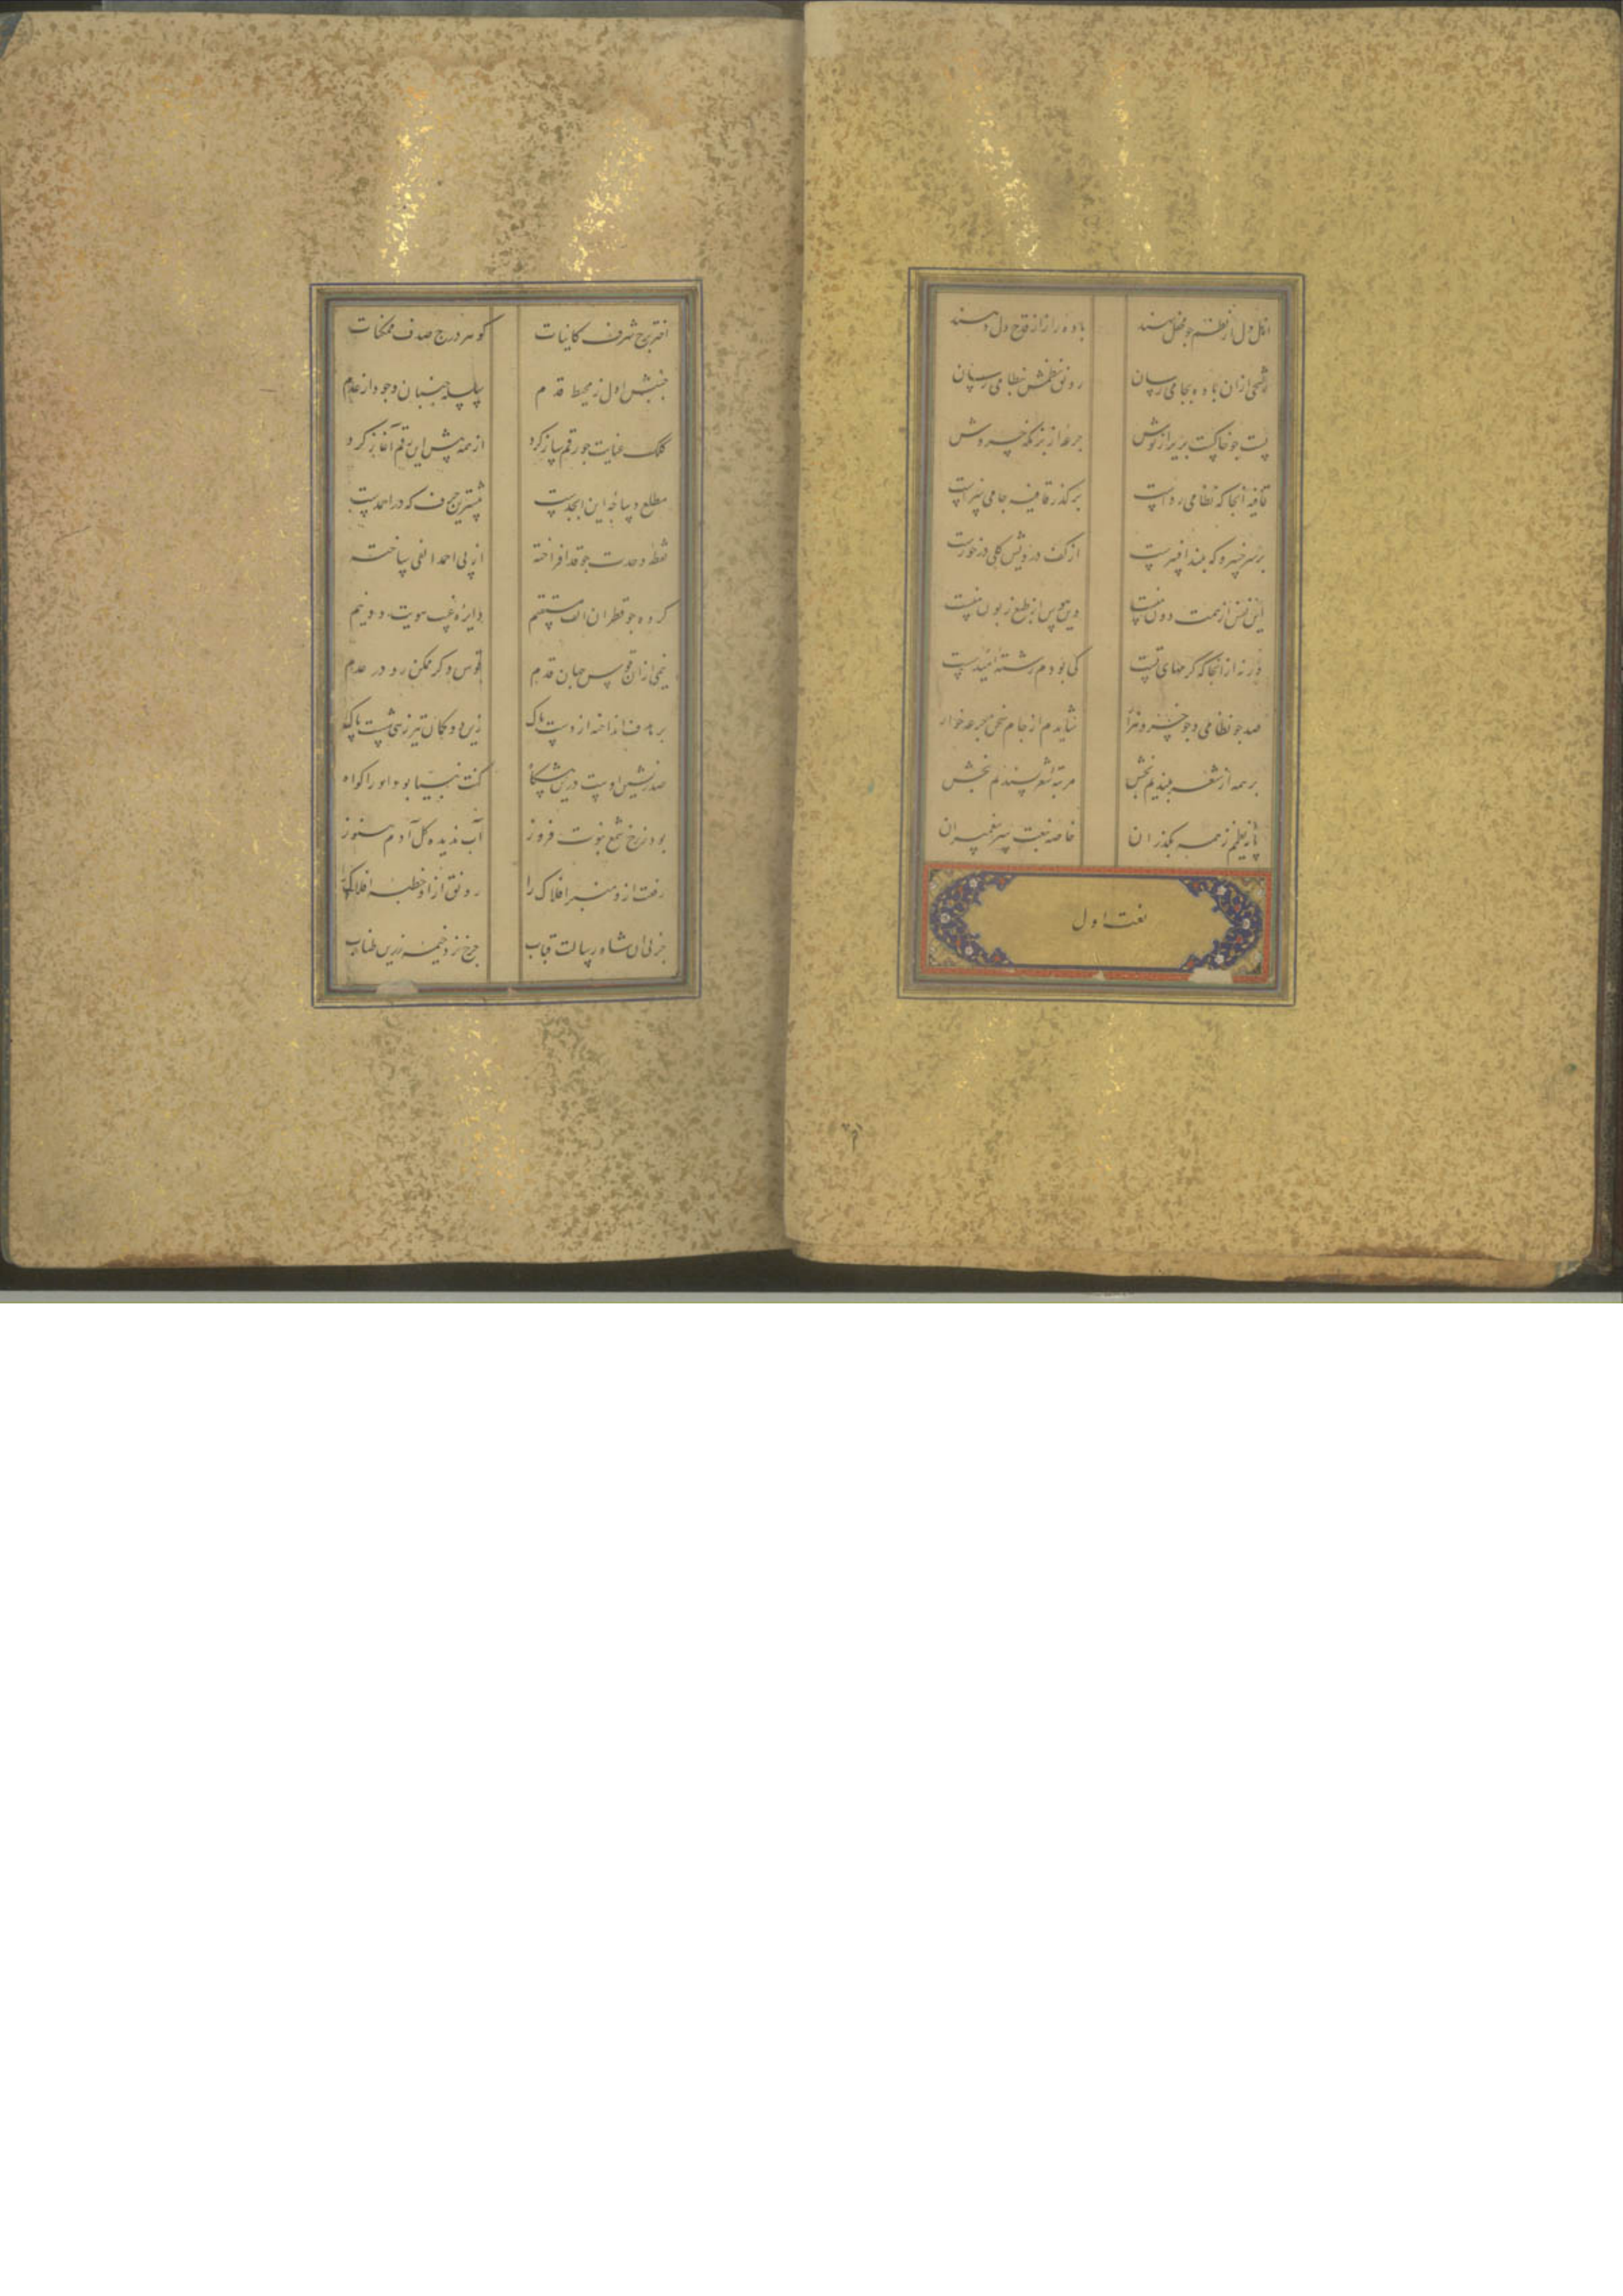 اهل دل از نظم چو محفل نهند باده راز از قدح دل دهند
رشحی ازان باده بجامی رسان رونق نظمش بنظامی رسان
پست چو خاکست بریز از نوش جرعه از بزمکه خسروش
قافیه آنجا که نظامی نواست بر گذر قافیه جامی سزاست
بر سر خسرو که بلند افسرست از کف درویش کلی در خورست
این نفس از همت دون منست وین هوس از طبع زبون منست
ورنه از آنجا که کرمهای تست کی بودم رشته امید سست
صد چو نظامی و چو خسرو هزار شایدم از جام سخن جرعه خوار
بر همه از شعر بلندیم بخش مرتبه شعر پسندیم بخش
پایه نظمم ز همه بگذران خاصه بنعت سر پیغمبران
نعت اول
اختر برج شرف کاینات گوهر درج صدف ممکنات
جنبش اول ز محیط قدم سلسله جنبان وجود از عدم
کلک عنایت چو رقم ساز کرد از همه پیش این رقم آغاز کرد
مطلع دیباچه این ابجدست پیشترین حرف که در احمدست
نقطه وحدت چو قد افراخته از پی احمد الفی ساخته
کرده چو قطر آن الف مستقیم دایره غیب هویت دو نیم
نیمی ازان قوس جهان قدم قوس دگر ممکن رو در عدم
بر هدف انداخته از دست پاک زین دو کمان تیر ز شست پاک
صدر نشین اوست درین پیشگاه کنت نبیا بود او را گواه
بود ز رخ شمع نبوت فروز آب ندیده گل آدم هنوز
رفعت ازو منبر افلاک را رونق ازو خطبه لولاک را
جز پی آن شاه رسالت قباب چرخ نزد خیمه زرین طناب